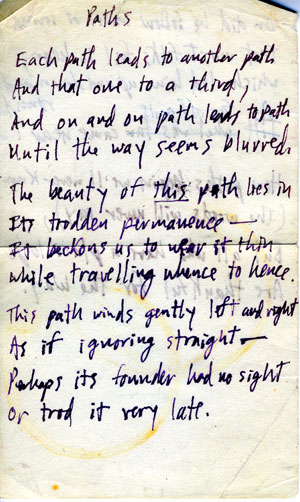 Paths
Each path leads to another path
And that one to a third,
And on and on path leads to path
Until the way seems blurred.
The beauty of this path lies in
Its trodden permanence —
It beckons us to wear it thin
while travelling whence to hence.
This path winds gently left and right
As if ignoring straight —
Perhaps its founder had no sight
Or trod it very late.